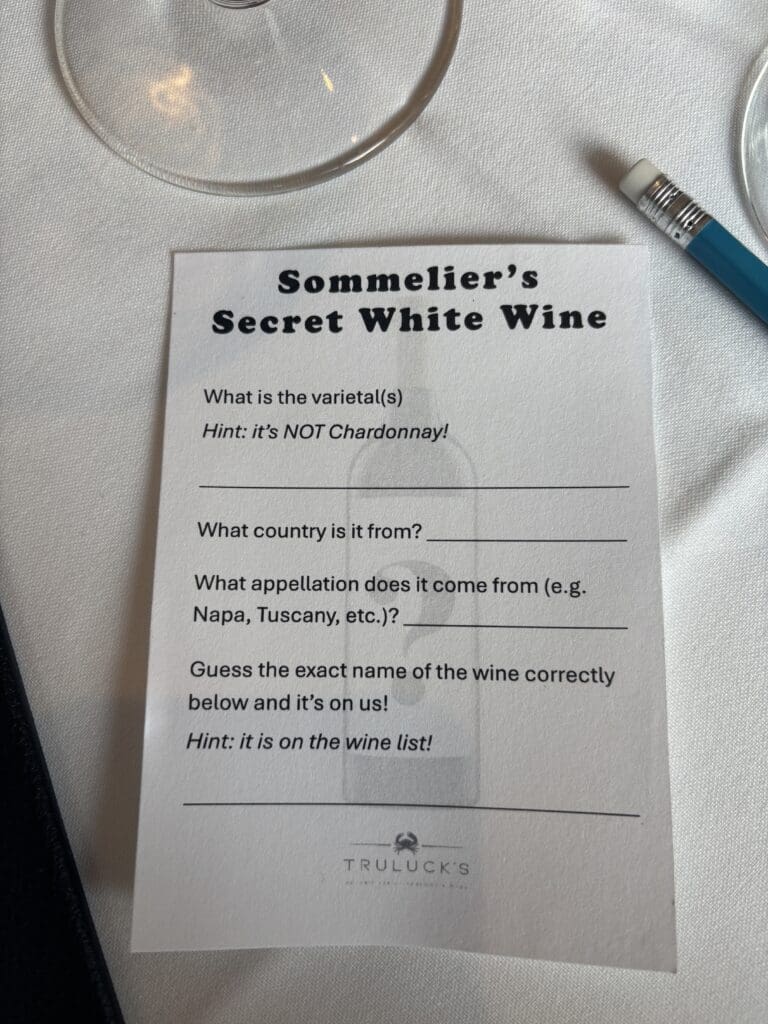 Sommelier's
Secret White Wine
What is the varietal(s)
Hint: it's NOT Chardonnay!
What country is it from?
What appellation does it come from (e.g.
Napa, Tuscany, etc.)?
Guess the exact name of the wine correctly
below and it's on us!
Hint: it is on the wine list!
TRULUCK'S